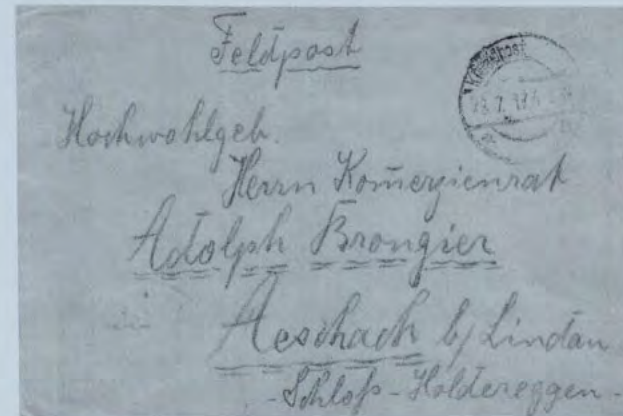 Feldpost
Hochwohlgeb.
Herrn Komerzienrat
Adolph Brongier
Aeschach b/ Lindau
- Schloß - Holdereggen -